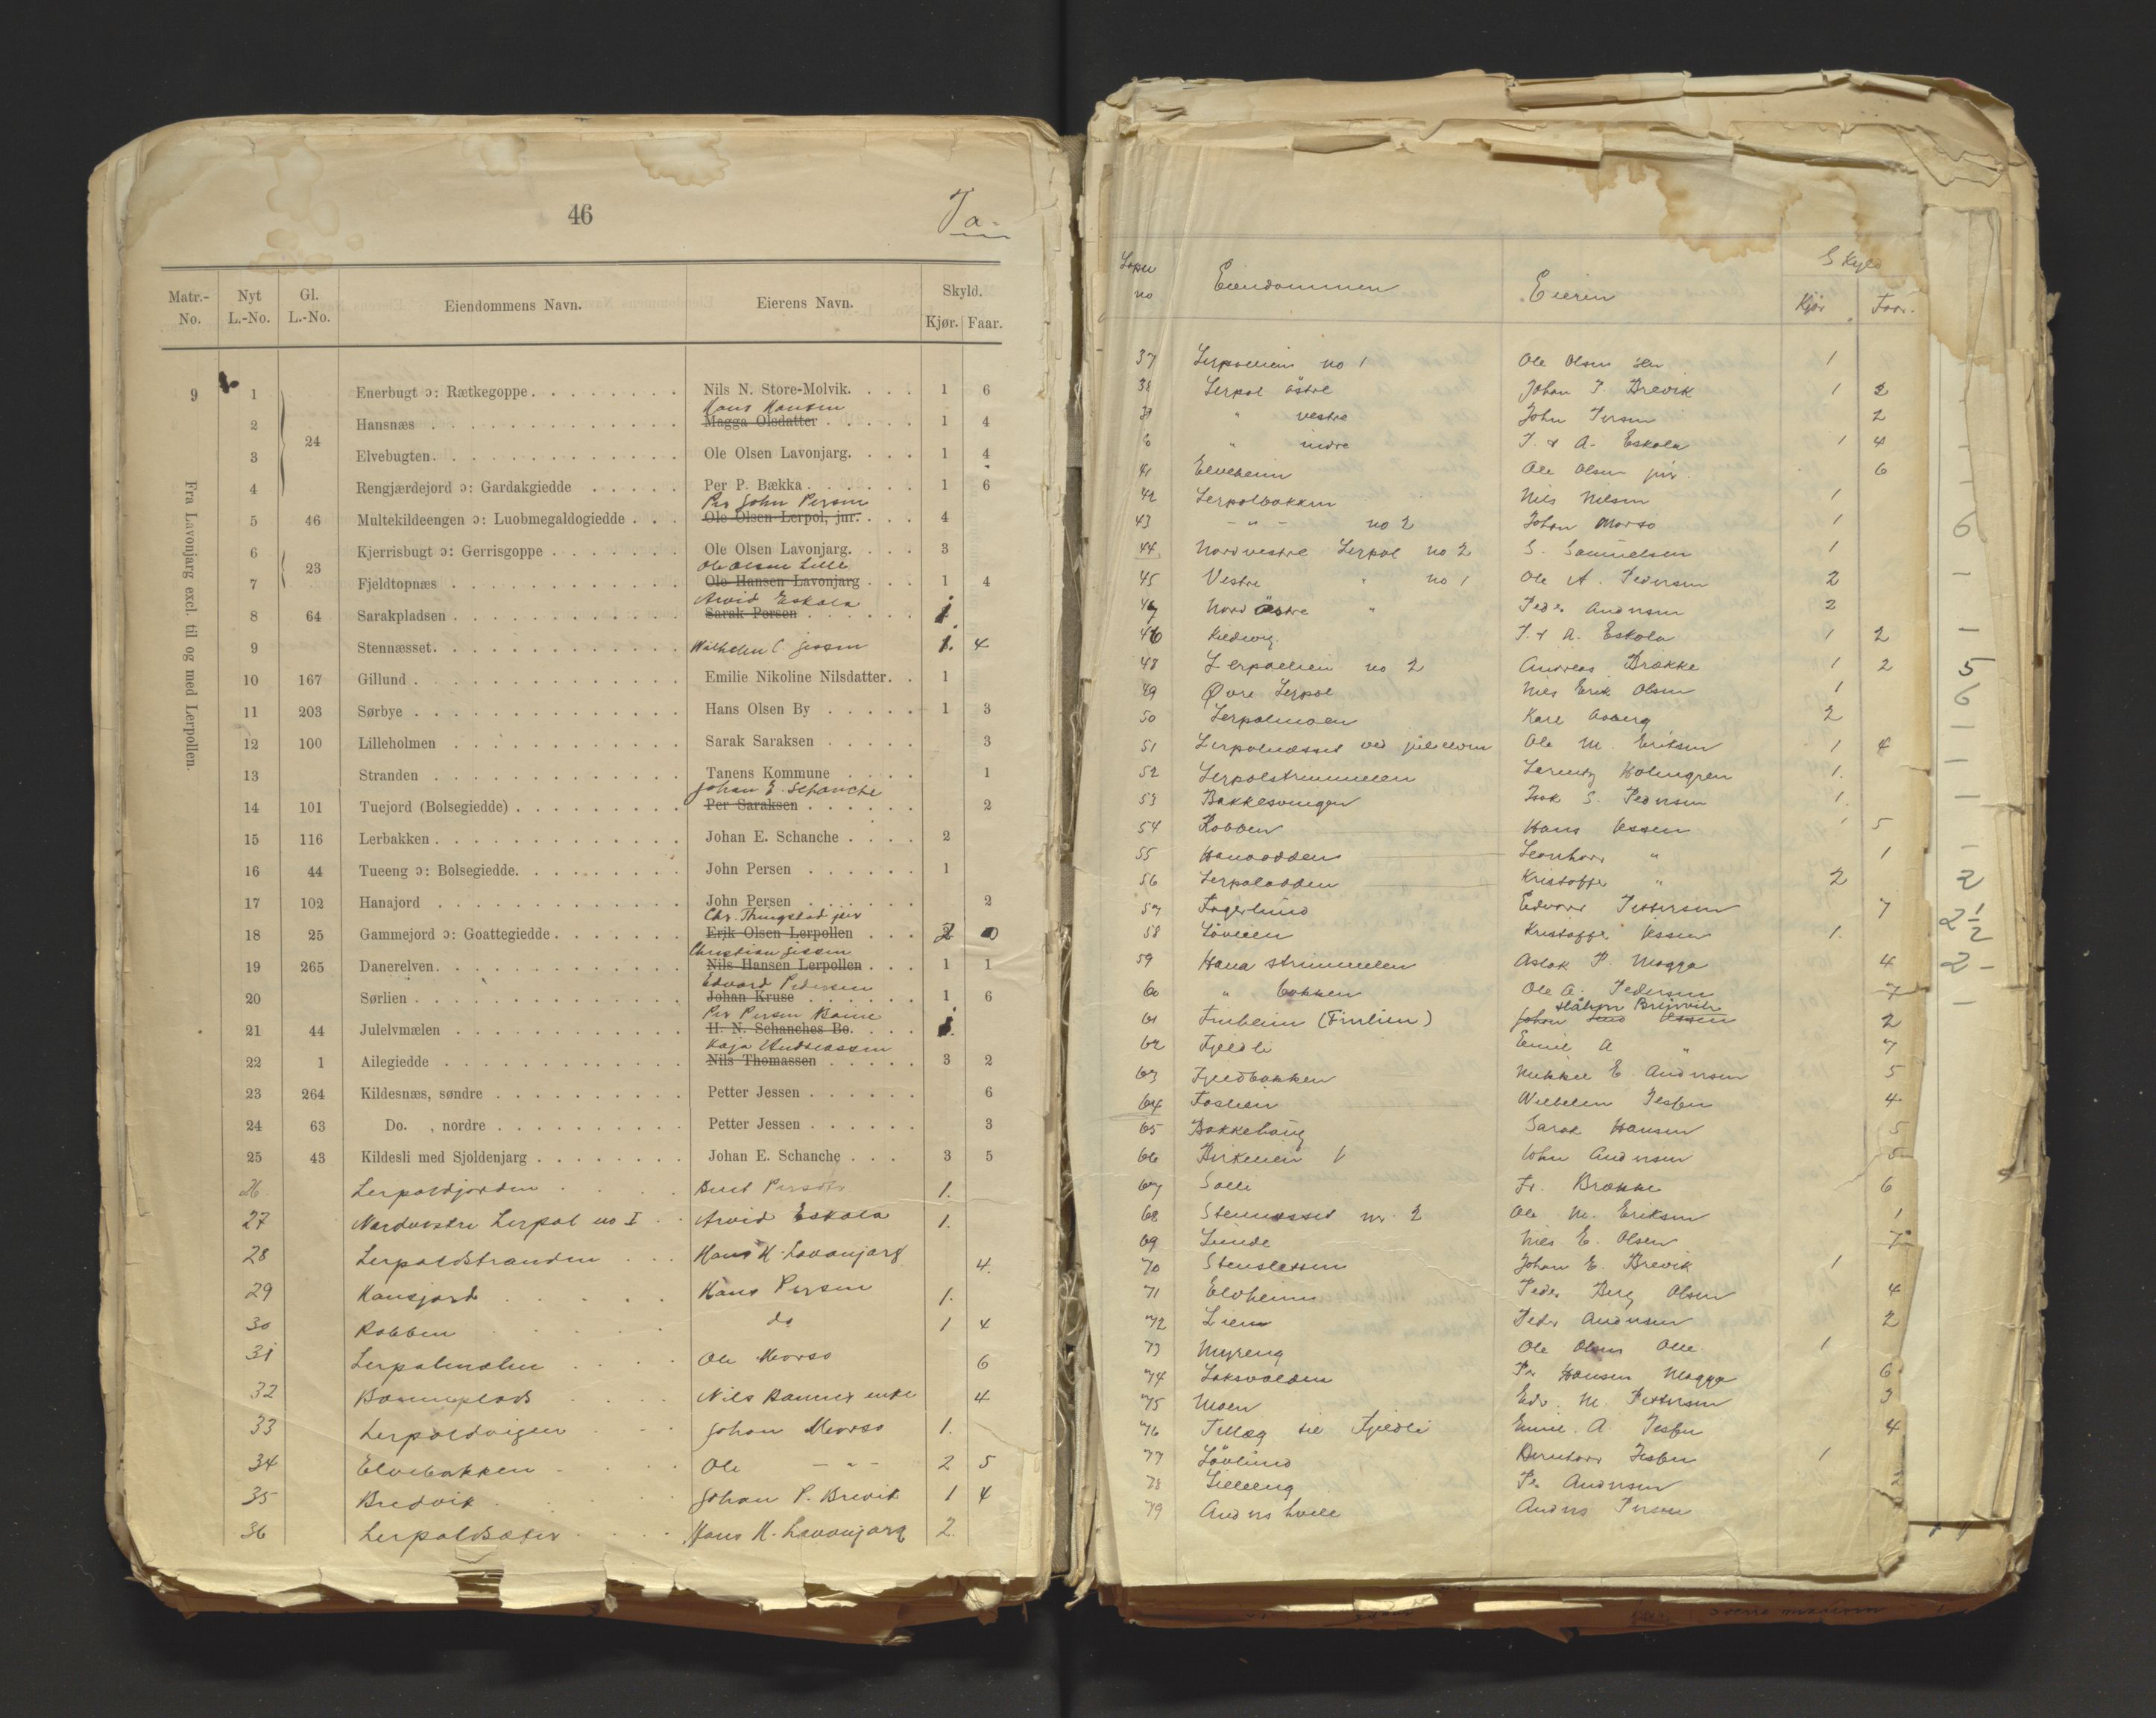 46
Tan
Matr.-No. Nyt L.-No. Gl. L.-No. Eiendommens Navn. Eierens Navn. Skyld. Kjør. Faar.
Fra Lavonjarg excl. til og med Lerpollen.
9 1 Enerbugt ɔ: Rætkegoppe Nils N. Store-Molvik. 1 6
Hans Hansen
2 Hansnæs Magga Olsdatter 1 4
24
3 Elvebugten Ole Olsen Lavonjarg. 1 4
4 Rengjærdejord ɔ: Gardakgiedde Per P. Bækka 1 6
Per John Persen
5 46 Multekildeengen ɔ: Luobmegaldogiedde Ole Olsen Lerpol, jur. 4
6 Kjerrisbugt ɔ: Gerrisgoppe Ole Olsen Lavonjarg. 3
23
Ole Olsen Lille
7 Fjeldtopnæs Ole Hansen Lavonjarg 1 4
Arvid Eskola
8 64 Sarakpladsen Sarak Persen 1
9 Stennæsset Wilhelm C. Jessen 1. 4
10 167 Gillund Emilie Nikoline Nilsdatter. 1
11 203 Sørbye Hans Olsen By 1 3
12 100 Lilleholmen Sarak Saraksen 3
13 Stranden Tanens Kommune 1
Johan E. Schanche
14 101 Tuejord (Bolsegiedde) Per Saraksen 2
15 116 Lerbakken Johan E. Schanche 2
16 44 Tueeng ɔ: Bolsegiedde. John Persen 1
17 102 Hanajord John Persen 2
Chr. Thingstad jun
18 25 Gammejord ɔ: Goattegiedde Erik Olsen Lerpollen 2
Christian Jessen
19 265 Danerelven Nils Hansen Lerpollen 1 1
Edvard Pedersen
20 Sørlien Johan Kruse 1 6
Per Persen
21 44 Julelvmælen H. N. Schanches Bo.
Kaja Andreassen
22 1 Ailegiedde Nils Thomassen 3 2
23 264 Kildesnæs, søndre Petter Jessen 6
24 63 Do. , nordre Petter Jessen 3
25 43 Kildesli med Sjoldenjarg Johan E. Schanche 3 5
26 Lerpoldjorden 1.
27 Nordvestre Lerpol no I Arvid Eskola 1.
28 Lerpoldstranden Hans H. Lavonjarg 4.
29 Hansjord Hans Persen 1.
30 Kobben do 1 4
31 Lerpolmælen Ole Morso 6
32 Nils enke 4
33 Lerpoldvigen Johan Morso 1.
34 Elvebakken Ole — " — 2 5
35 Bredvik Johan P. Brevik 1 4
36 Lerpoldsæter Hans H. Lavonjarg 2.
Løpe no Eiendommen Eieren Skyld Kjør Faar.
37 Lerpollien no 1 Ole Olsen sen 1
38 Lerpol östre Johan P. Brevik 1 2
39 " vestre John Persen 2
" indre J. & A. Eskola 1 4
41 Elveheim Ole Olsen jun 6
42 Lerpolbakken Nils Nilsen 1
43 - " - no 2 Johan Morso 1
44 Nordvestre Lerpol no 2 S. Samuelsen 1
45 Vestre " no 1 Ole A. Pedersen 2
47 Nordöstre " Peder Andersen 2
46 J. & A. Eskola 1 2
48 Lerpollien no 2 Andreas Brække 1 2
49 Øvre Lerpol Nils Erik Olsen 1
50 Lerpolmoen Karl 2
51 Lerpolnæsset ved Julelven Ole M. Eriksen 1 4
52 Lerpolstrimmelen Lorentz Holmgren 1.
53 Bakkesvingen Isak S. Pedersen 1.
54 Kobben Hans Jessen 5
55 Hanaodden Leonhard " 1
56 Lerpolodden Kristoffer " 2
57 Fagerlund Edvard Pettersen 7
58 Lövlien Kristoffer Jessen 1.
59 Hana strimmelen Aslak P. Magga 4
60 " bakken Ole A. Pedersen 7
Håkon
61 Finheim (Finlien) Johan Jessen 2
62 Fjeldli Emil A " 7
63 Fjeldbakken Mikkel E. Andersen 5
64 Foslien Wilhelm Jessen 4
65 Bakkehaug Sarak Hansen 5
66 Birkelien John Andersen 5
67 Solli Fr. Brække 6
68 Stennæsset nr. 2 Ole M. Eriksen 1
69 Linde Nils E. Olsen 7
70 Stensletten Johan E. Brevik 1
71 Elvheim Peder Berg Olsen 4
72 Lien Peder Andersen 2
73 Myreng Ole Olsen Olle 1
74 Laksvolden Per Hansen Magga 6
75 Moen Edv. M. Pettersen 3
76 Tillæg til Fjeldli Emil A. Jessen 4
77 Lövlund Bernhard Jessen 1
78 Lilleeng Pr. Andersen 2
79 Anders hvile Anders Persen
6
5
6
2
2½
2